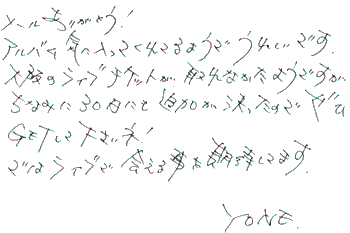 メールありがとう!
アルバム気に入ってくれてるようでうれしいです。
大阪のライブチケットが取れなかったようですが
ちなみに30日にも追加が決ったのでぜひ
GETして下さいネ!
ではライブで会える事を期待してます。
YONE.